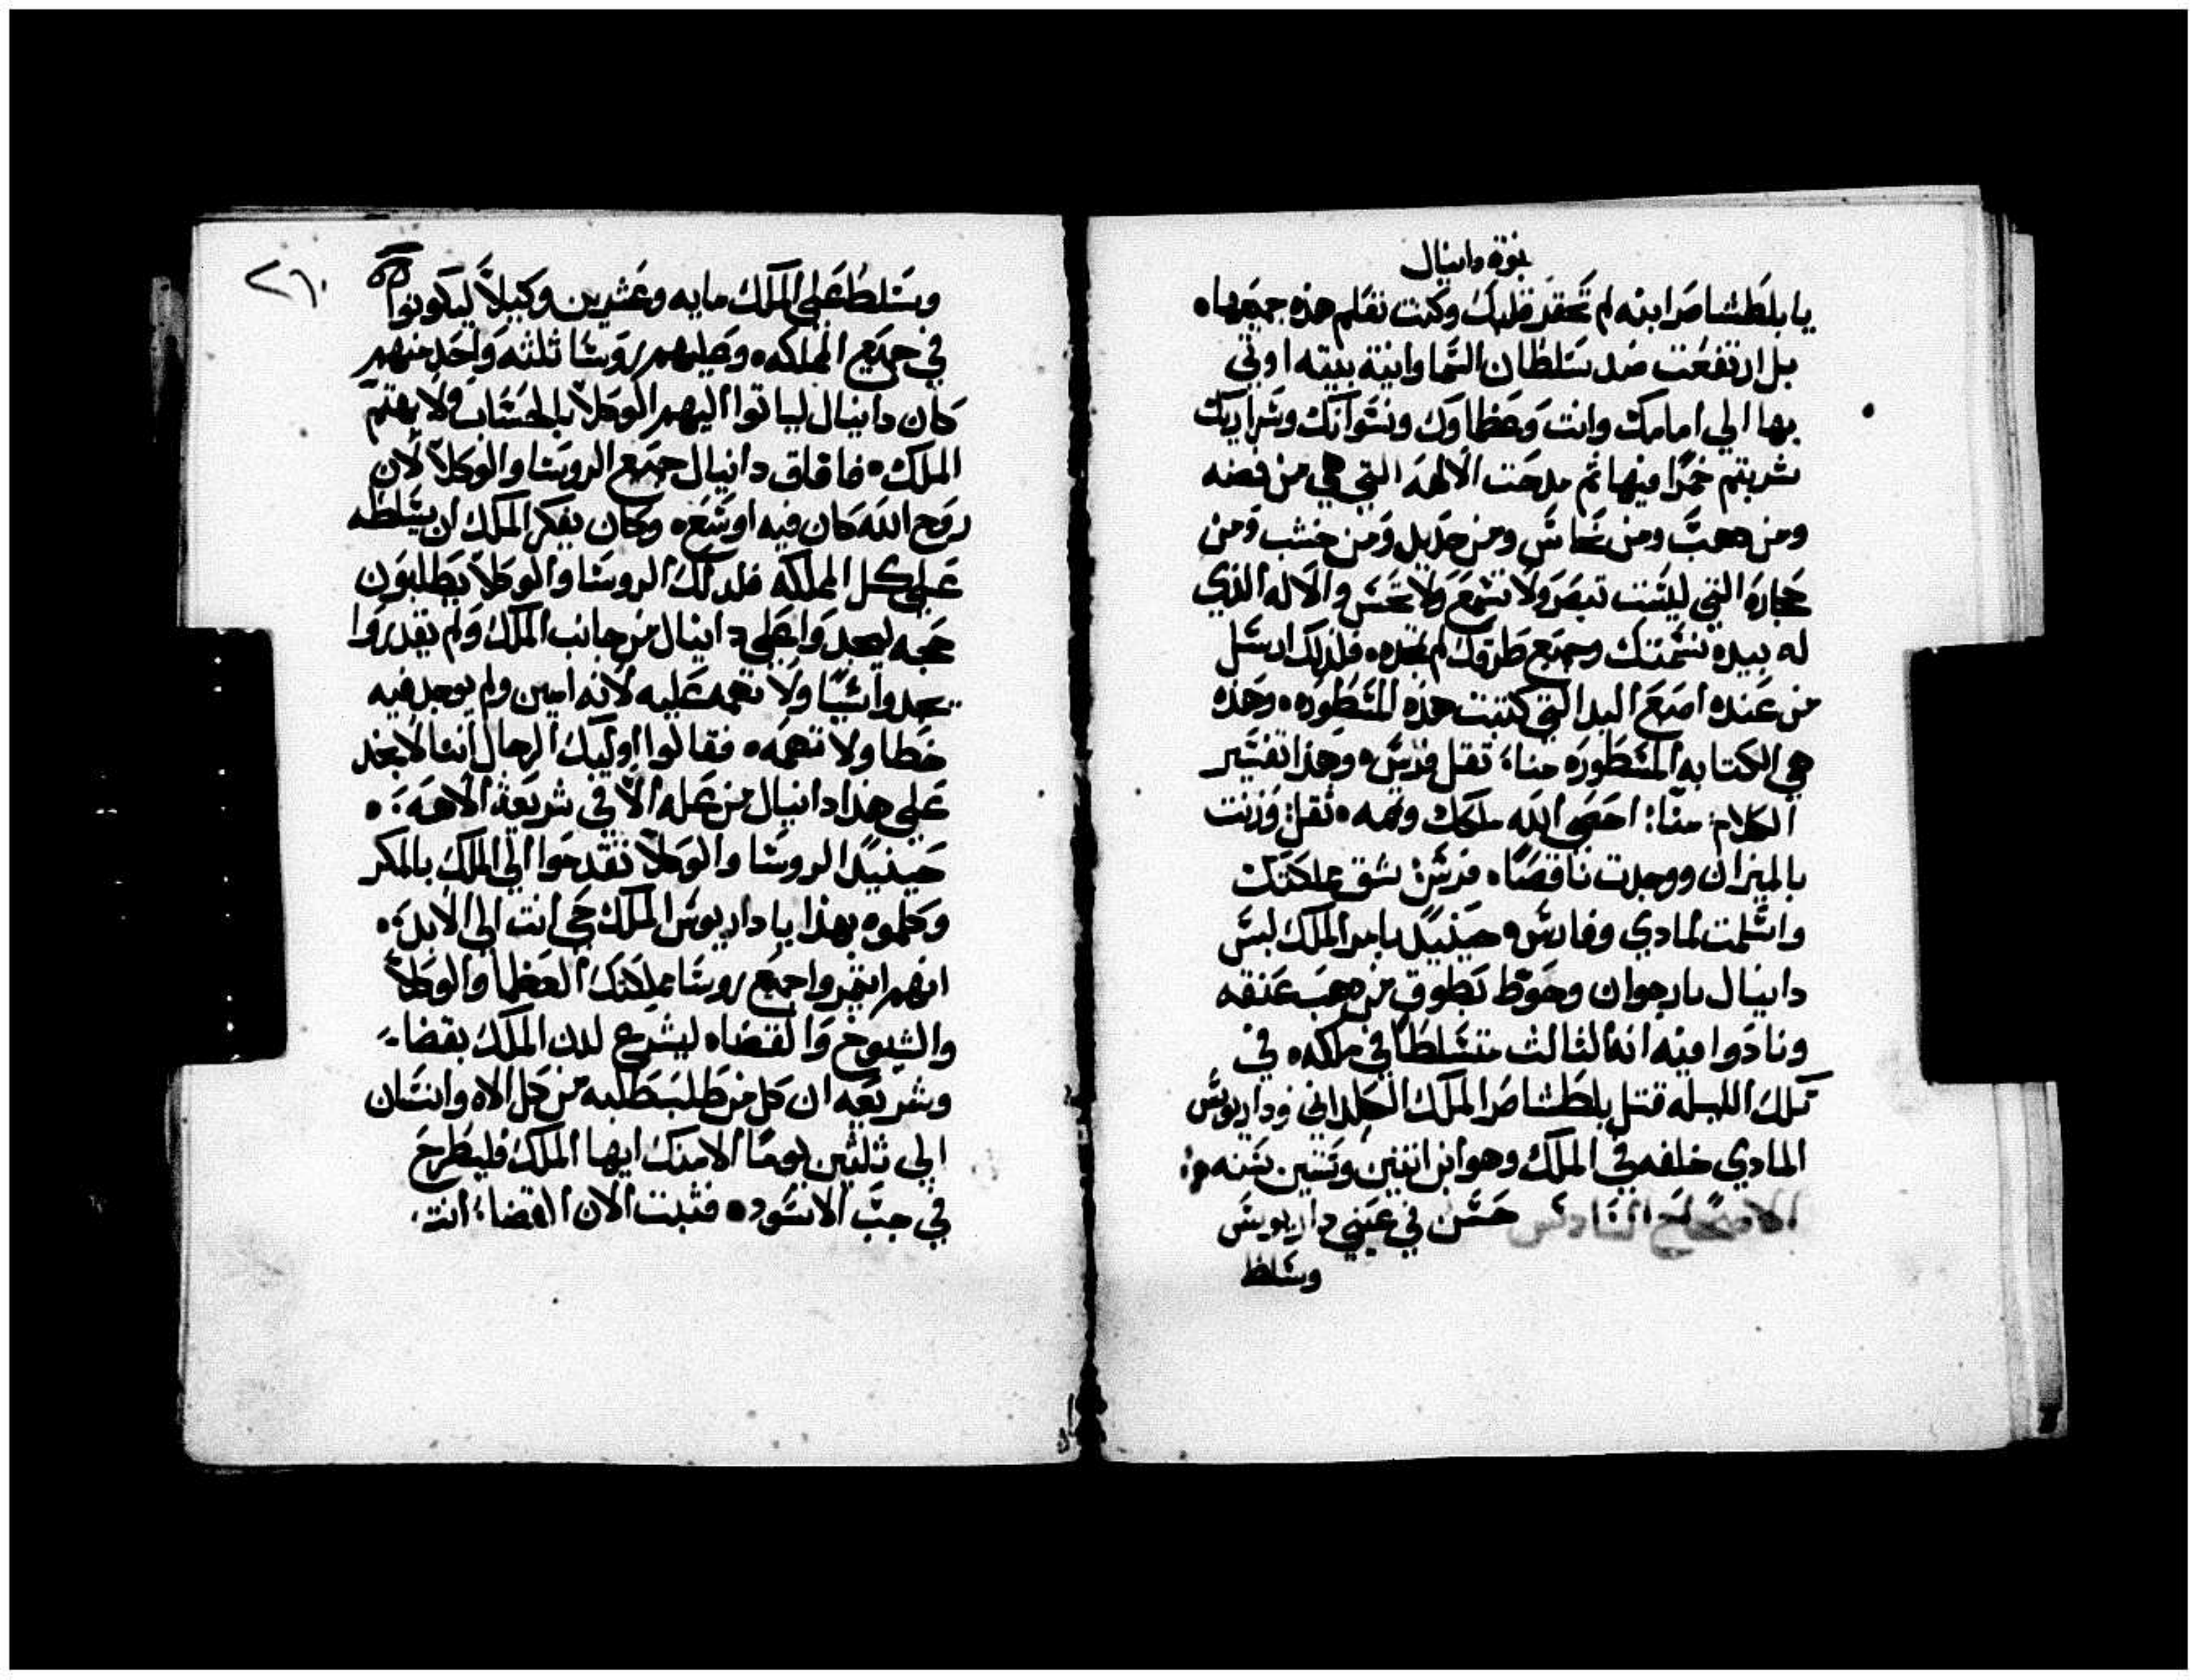 نبوة دانيال
يا بلطشاصر ابنه لم تحقر قلبك وكنت تعلم هذه جميعها ه
بل ارتفعت ضد سلطان السما وانية بيته اوتي
بها الي امامك وانت وعظماوك ونسوانك وسراريك
شربتم خمرًا فيها ثم مدحت الالهه التي هي من فضه
ومن دهب ومن نحاس ومن حديد ومن خشب ومن
حجاره التي ليست تبصر ولا تسمع ولا تحس والاله الذي
له بيده نسمتك وجميع طرقك لم تمجده ه فلذلك ارسل
من عنده اصبع اليد التي كتبت هذه المسطوره ه وهذه
هي الكتابه المسطوره منا، تقل فرس ه وهذا تفسير
الكلام: منا: احصي الله ملكك وتمه ه تقل: وزنت
بالميزان ووجدت ناقصًا ه فرس: شق مملكتك
واسلمت لمادي وفارس ه حينيدٍ بامر الملك لبس
دانيال بارجوان وحوط بطوق من دهب عنقه
ونادوا فيه انه الثالث متسلطًا في ملكه ه في
تلك الليله قتل بلطشاصر الملك الكلداني وداريوس
المادي خلفه في الملك وهو ابن اثنين وستين سنه ه
الاصحاح السادس حسن في عيني داريوس
وسلط
٢٦٠
وسلط علي الملك مايه وعشرين وكيلاً ليكونوا
في جميع المملكه ه وعليهم روسا ثلثه واحد منهم
كان دانيال لياتوا اليهم الوكلا بالحساب ولا يهتم
الملك ه فافاق دانيال جميع الروسا والوكلا لان
روح الله كان فيه اوسع ه وكان يفكر الملك ان يسلطه
علي كل المملكه فلدلك الروسا والوكلا يطلبون
حجه ليجدوا علي دانيال من جانب الملك ولم يقدروا
يجدوا شيًا ولا تهمه عليه لانه امين ولم يوجد فيه
خطا ولا تهمه ه فقالوا اوليك الرجال اننا لا نجد
علي هذا دانيال من عله الا في شريعة الاهه ه
حينيدٍ الروسا والوكلا تقدموا الي الملك بالمكر
وكلموه بهذا يا داريوس الملك حي انت الي الابد ه
انهم ايتمروا جميع روسا مملكتك العظما والوكلا
والشيوخ والقضاه ليشرع لدن الملك بقضا
وشريعه ان كل من طلب طلبه من كل الاه وانسان
الي ثلثين يومًا الا منك ايها الملك فليطرح
في جب الاسود ه فثبت الان القضا: انت